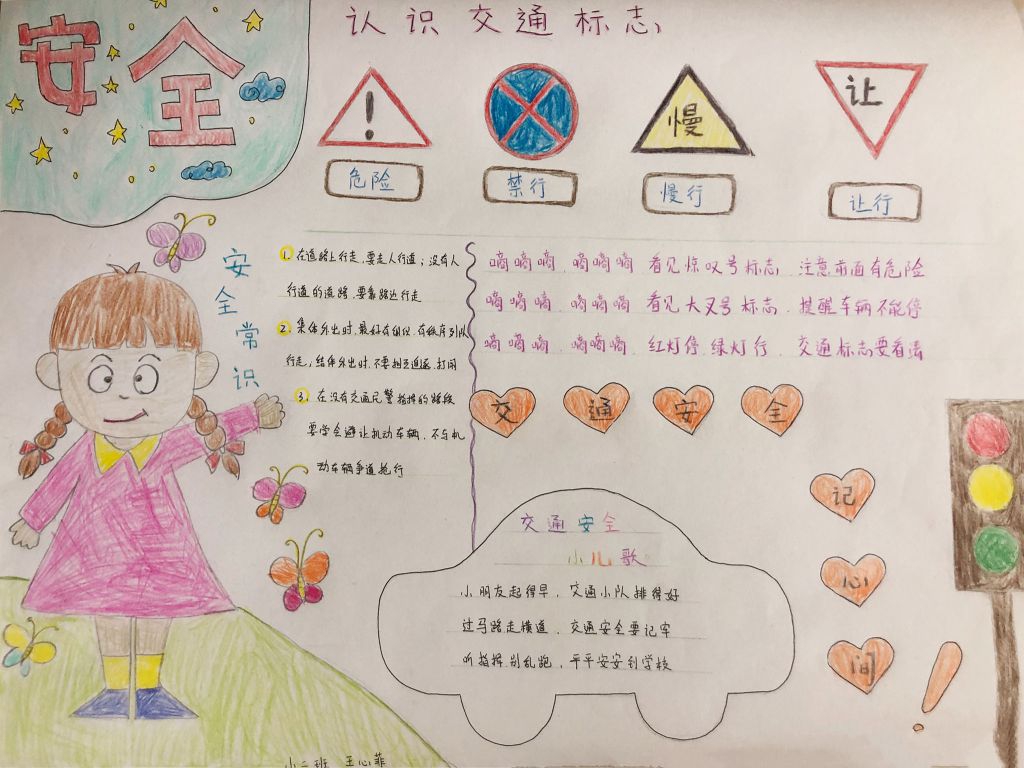 安全
认识交通标志
!
慢
让
危险
禁行
慢行
让行
安全常识
1. 在道路上行走,要走人行道;没有人
行道的道路,要靠路边行走
2. 集体外出时,最好有组织、有秩序列队
行走;结伴外出时,不要相互追逐、打闹
3. 在没有交通民警指挥的路段
要学会避让机动车辆,不与机
动车辆争道抢行
嘀嘀嘀,嘀嘀嘀 看见惊叹号标志 注意前面有危险
嘀嘀嘀,嘀嘀嘀 看见大叉号标志,提醒车辆不能停
嘀嘀嘀,嘀嘀嘀,红灯停,绿灯行,交通标志要看清
交通安全
记
心
间
!
交通安全
小儿歌
小朋友起得早,交通小队排得好
过马路走横道,交通安全要记牢
听指挥别乱跑,平平安安到学校
小二班 王心菲